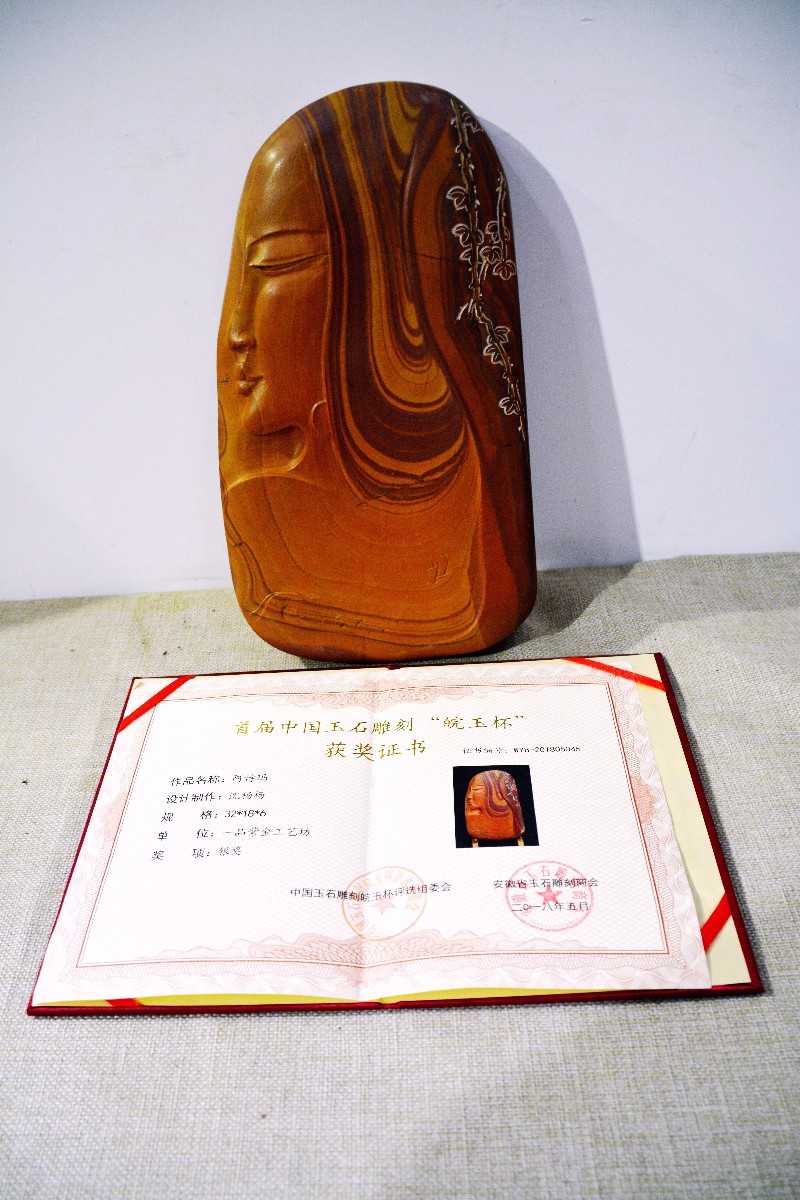 首届中国玉石雕刻“皖玉杯”
获奖证书
证书编号：WYB-201805045
作品名称：阿诗玛
设计制作：沈杨杨
规 格：32*18*6
单 位：一品紫金工艺坊
奖 项：银奖
中国玉石雕刻皖玉杯评选组委会
安徽省玉石雕刻商会
二〇一八年五月